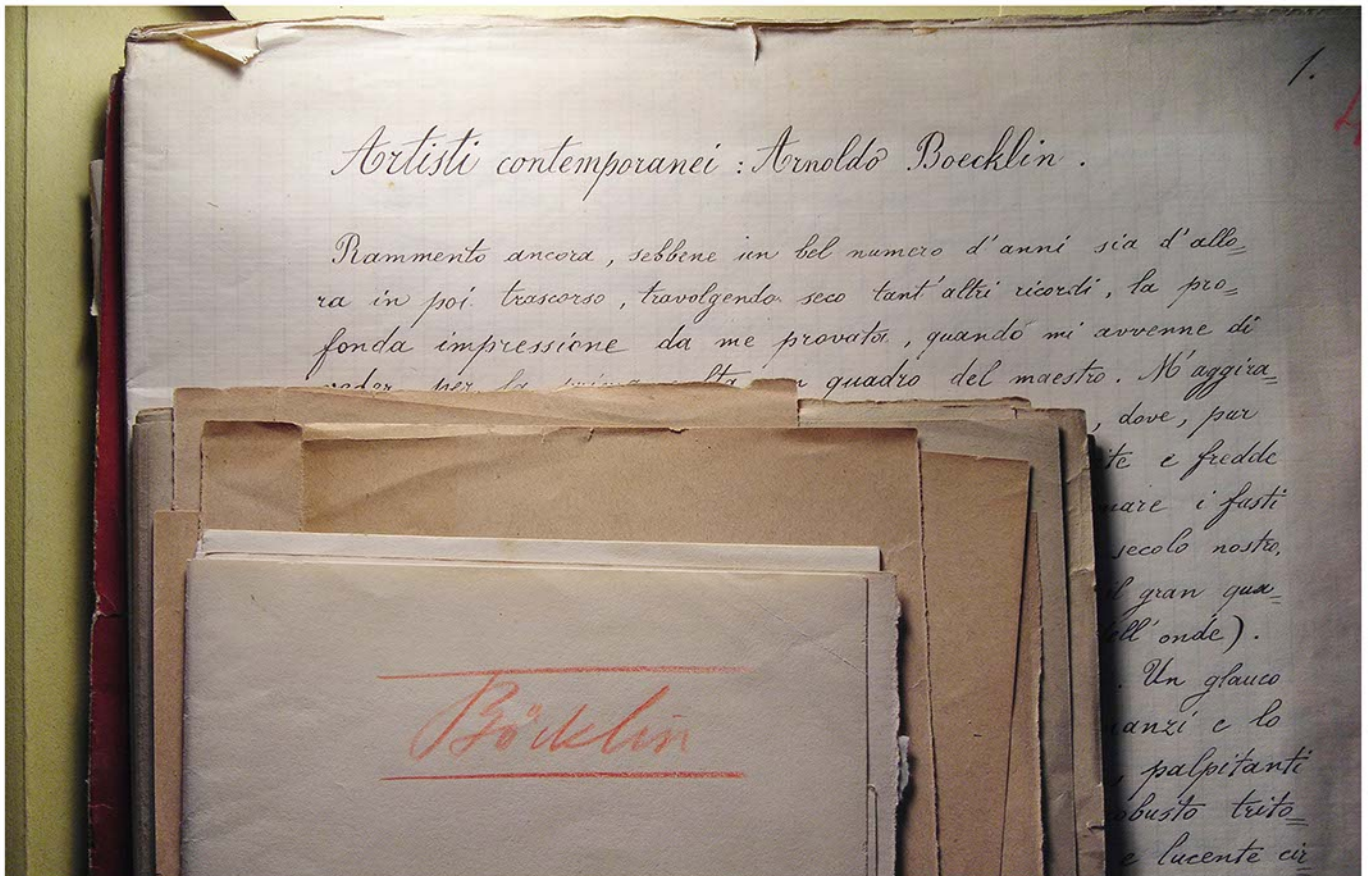 1.
Artisti contemporanei : Arnoldo Boecklin .
Rammento ancora, sebbene un bel numero d'anni sia d'allo=
ra in poi trascorso, travolgendo seco tant'altri ricordi, la pro=
fonda impressione da me provata, quando mi avvenne di
veder per la prima volta un quadro del maestro. M'aggira=
, dove, pur
e fredde
i fasti
secolo nostro,
il gran qua=
dell'onde).
. Un glauco
e lo
, palpitanti
robusto trito=
e lucente cir
Böcklin